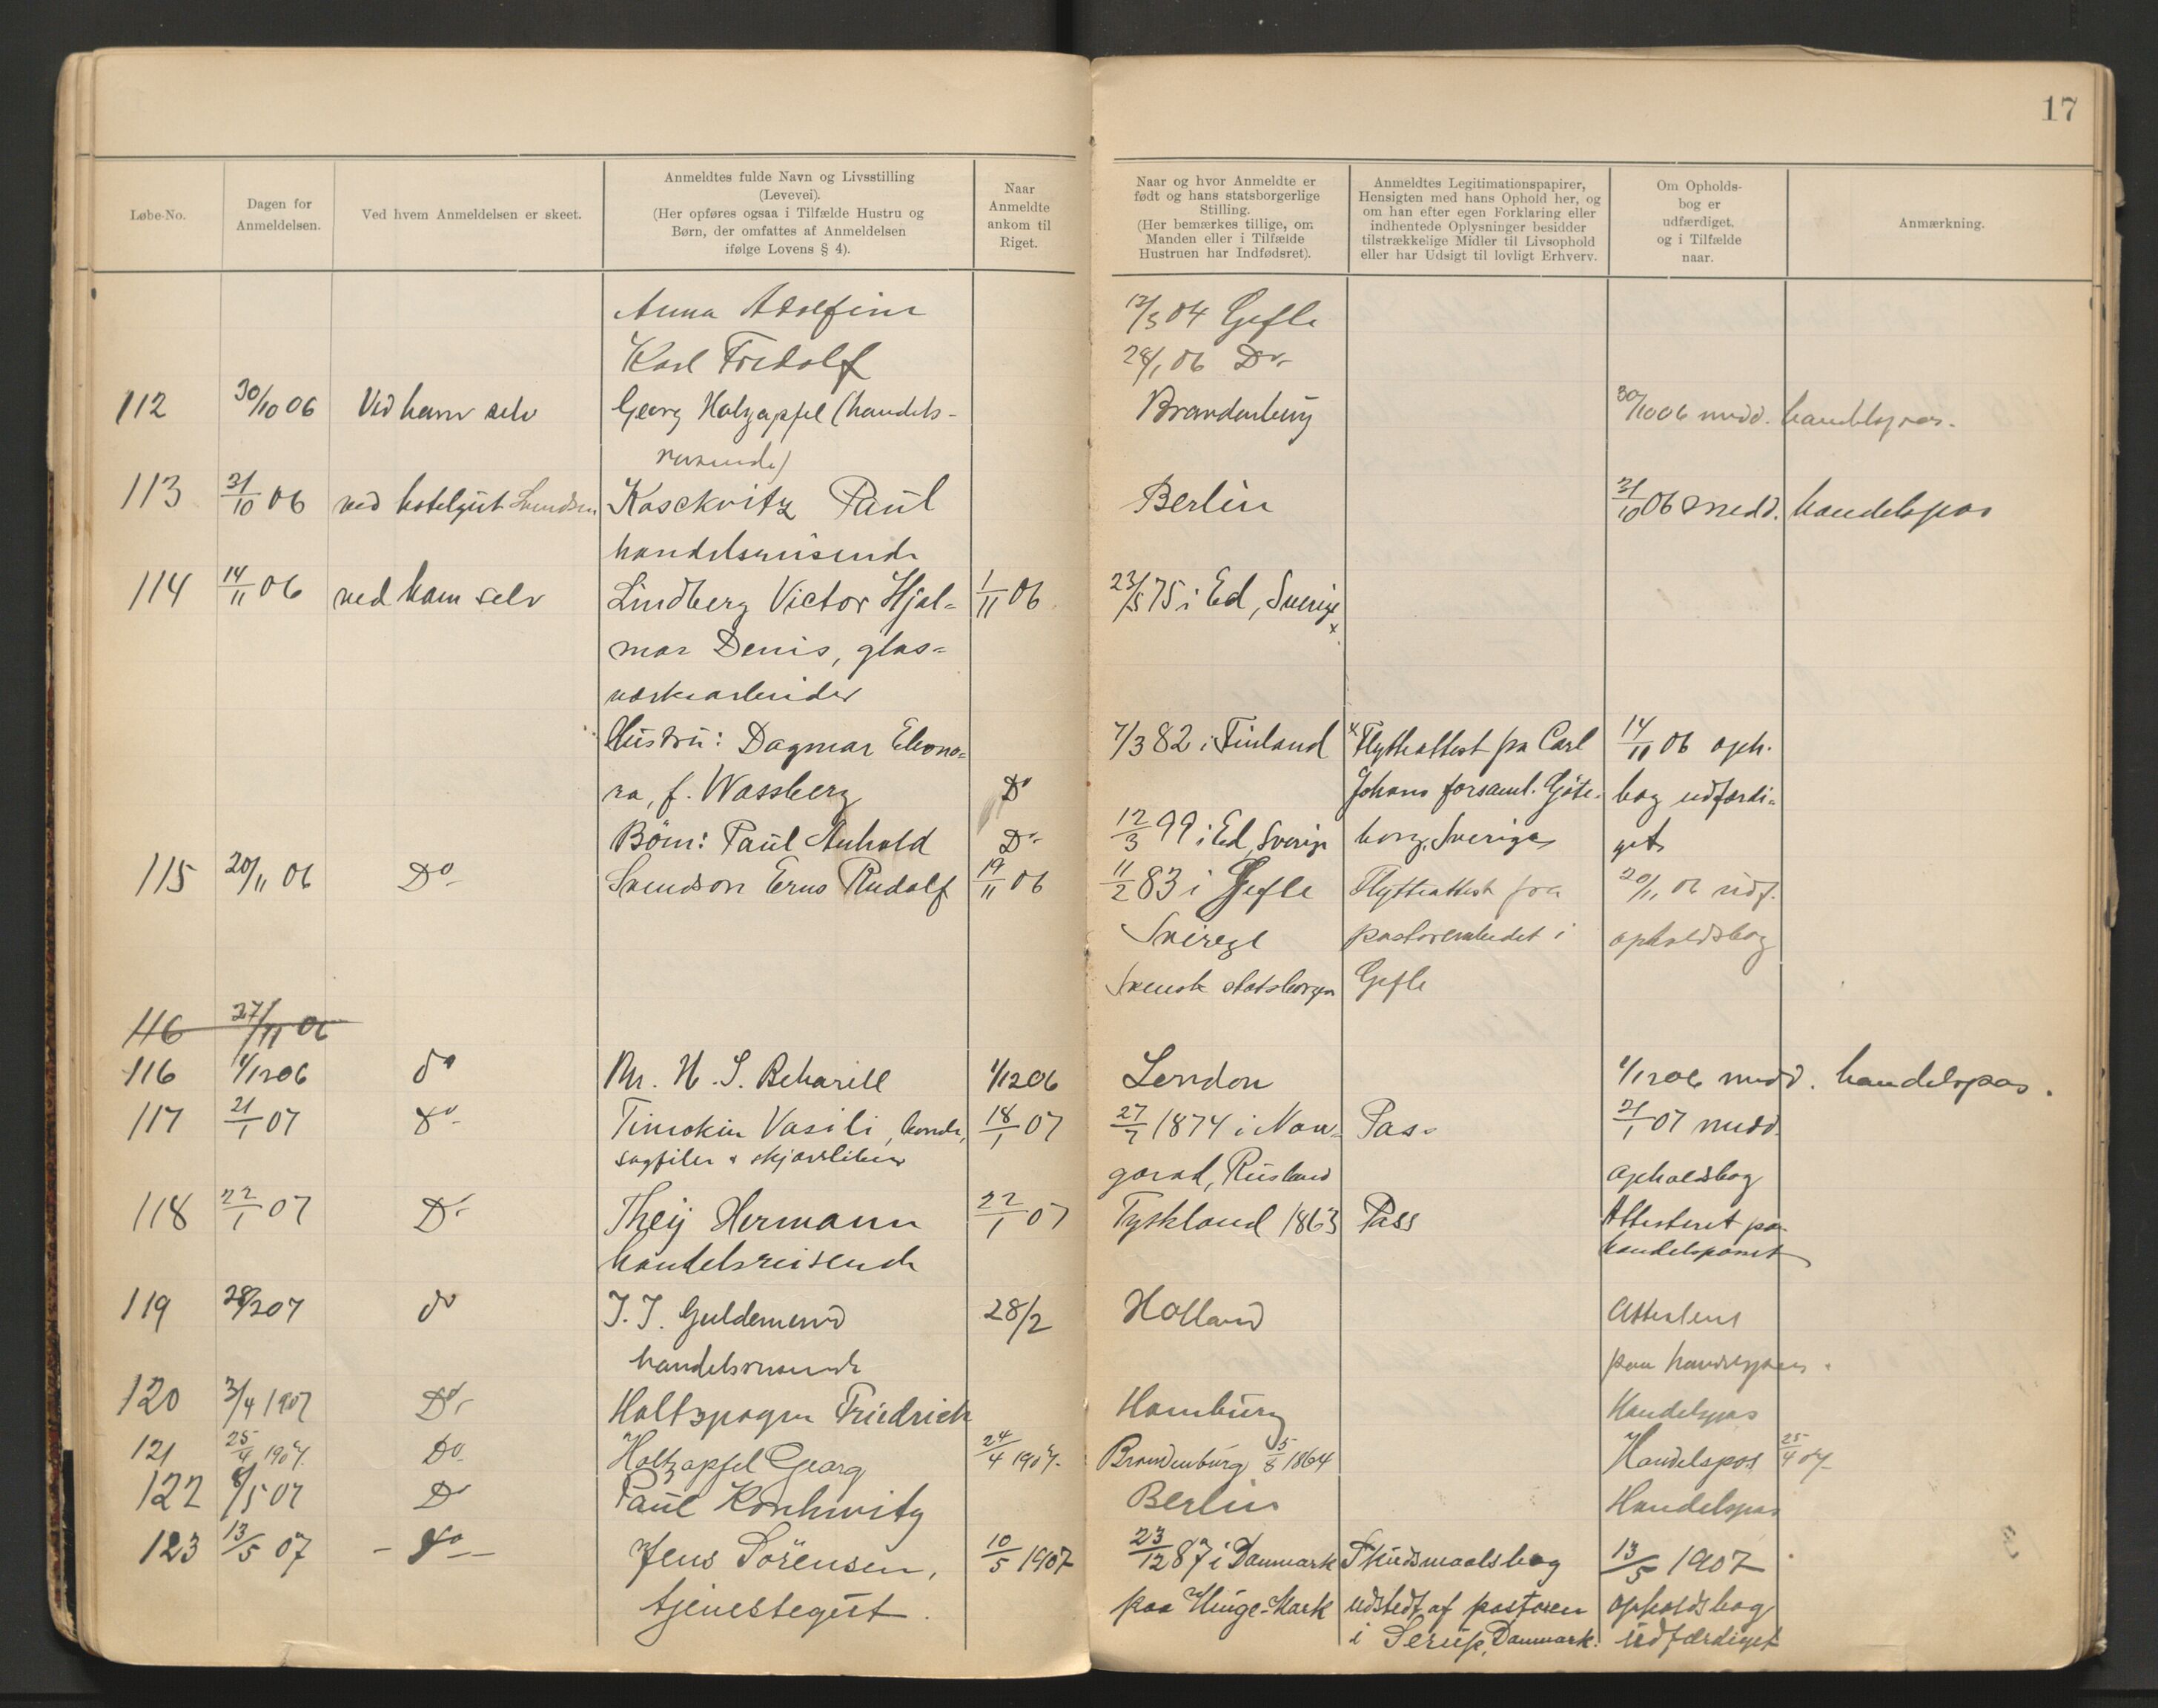 17
Løbe-No.
Dagen for
Anmeldelsen.
Ved hvem Anmeldelsen er skeet.
Anmeldtes fulde Navn og Livsstilling
(Levevei).
(Her opføres ogsaa i Tilfælde Hustru og
Børn, der omfattes af Anmeldelsen
ifølge Lovens § 4).
Naar
Anmeldte
ankom til
Riget.
Naar og hvor Anmeldte er
født og hans statsborgerlige
Stilling.
(Her bemærkes tillige, om
Manden eller i Tilfælde
Hustruen har Indfødsret).
Anmeldtes Legitimationspapirer,
Hensigten med hans Ophold her, og
om han efter egen Forklaring eller
indhentede Oplysninger besidder
tilstrækkelige Midler til Livsophold
eller har Udsigt til lovligt Erhverv.
Om Opholds-
bog er
udfærdiget,
og i Tilfælde
naar.
Anmærkning.
Anna Adolfina 12/3 04 Gefle
Karl Fridolf 28/1 06 Do
112 30/10 06 Ved ham selv Georg Holzapfel (handels- Brandenburg 30/10 06 medd. handelspas.
reisende)
113 31/10 06 ved hotelgut Kosckvitz Paul Berlin 31/10 06 medd. handelspas
handelsreisende
114 14/11 06 ved ham selv Lindberg Victor Hjal= 1/11 06 23/5 75 i Ed, Sverige x
mar Denis, glas=
verksarbeider
Hustru: Dagmar Eleono= 7/3 82 i Finland x Flytteattest fra Carl 14/11 06 oph.
ra, f. Wassberg Do Johans forsaml. Göte- bog udfærdi=
Börn: Paul Anhold Do 12/3 99 i Ed, Sverige borg, Sverige get
115 20/11 06 Do Svendson Erns Rudolf 19/11 06 11/2 83 i Gefle Flytteattest fra 20/11 06 udf.
Sverige pastorembedet i opholdsbog
Svensk statsborger Gefle
116 27/11 06
116 1/12 06 do Mr. H. S. Beharell 1/12 06 London 1/12 06 medd. handelspas.
117 21/1 07 Do Timokin Vasili, 18/1 07 27/7 1874 i Now= Pas. 21/1 07 medd.
sagfiler & skjærsliber gorod, Rusland opholdsbog
118 22/1 07 Do Theij Hermann 22/1 07 Tyskland 1863 Pass Attesteret paa
handelsreisende handelspasset
119 28/2 07 do J. J. Guldemund 28/2 Holland Attesteret
handelsreisende paa handelspasset.
120 3/4 1907 Do Holtzpagen Friedrich Hamburg Handelspas
121 25/4 1907. Do Holtzapfel Georg 24/4 1907. Brandenburg 5/8 1864 Handelspas 25/4 07
122 8/5 07 Do Paul Koschwitz Berlin Handelspas
123 13/5 07 - Do - Jens Sörensen, 10/5 1907 23/12 87 i Danmark Skudsmaalsbog 13/5 1907
tjenestegut. paa Hinge-Mark udstedt af pastoren opholdsbog
i Serup, Danmark. udfærdiget